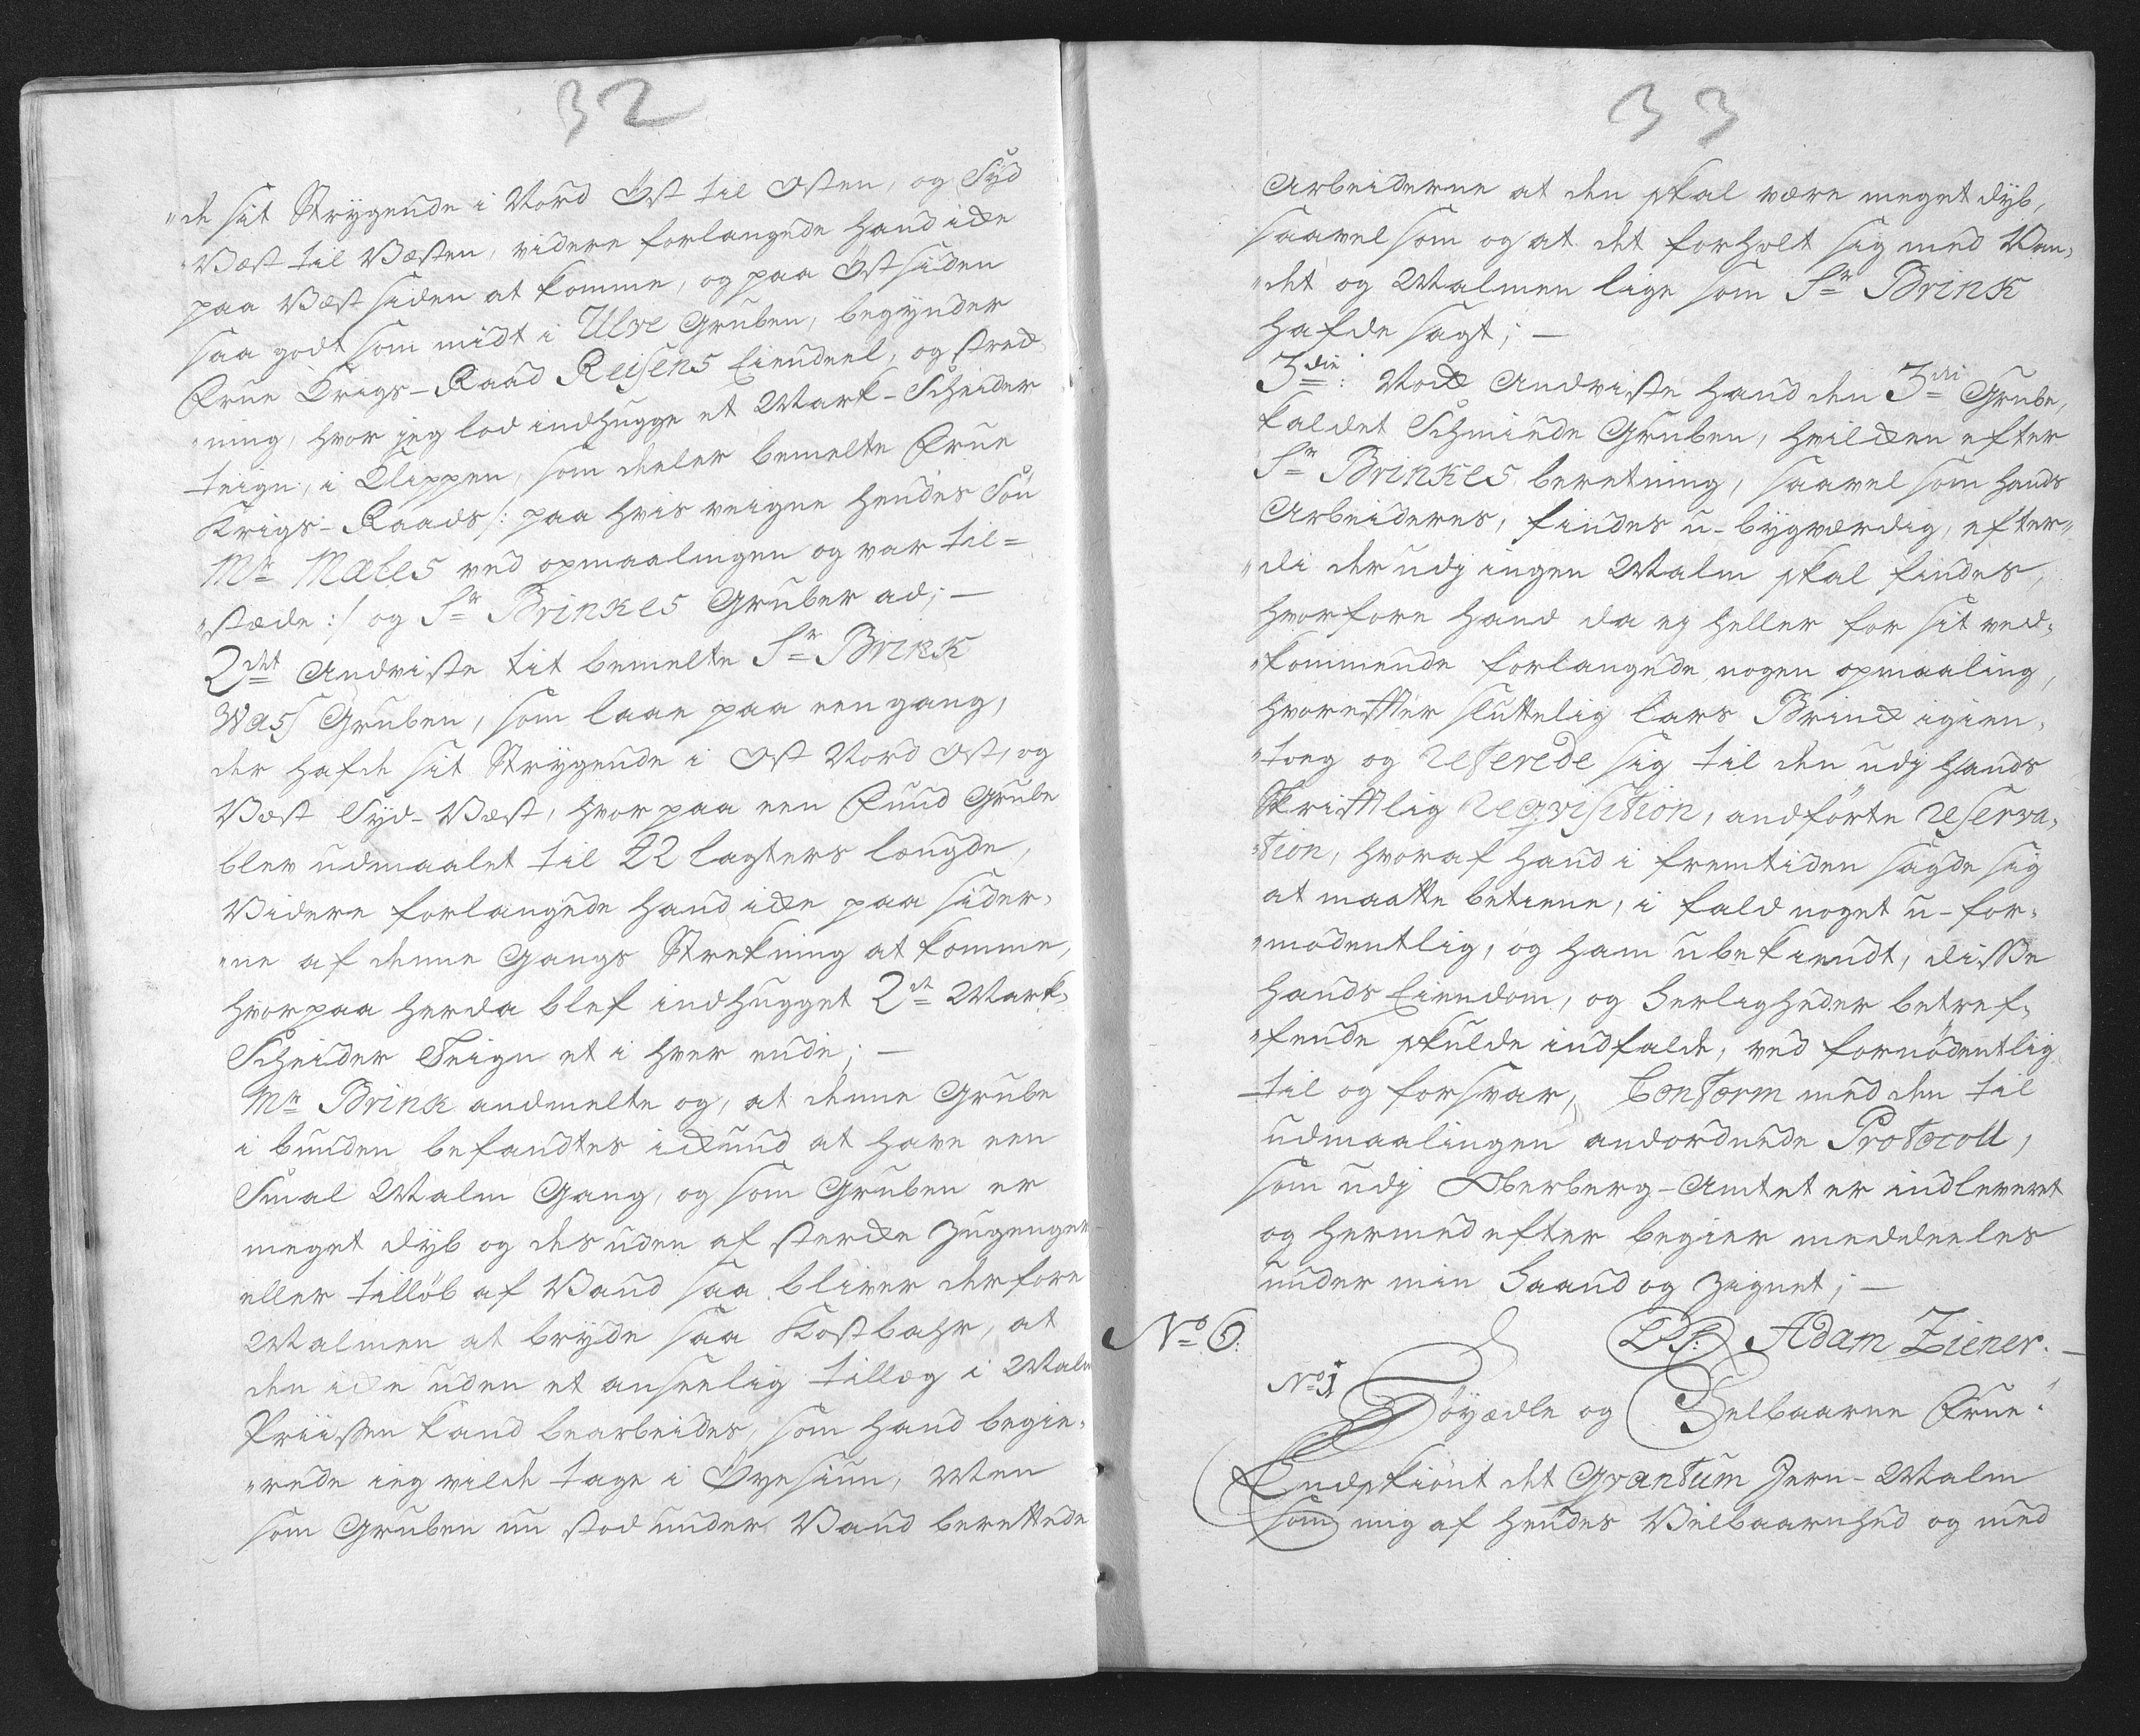 32
"de sit Strygende i Nord Öst til Osten, og Syd
"Væst til Væsten, videre forlangede hand icke
paa Væst siden at komme, og paa Öst siden
saa godt som midt i Ulve Gruben, begynder
Frue Krigs-Raad Reisens Eiendeel, og streck
"ning, hvor jeg lod indhugge et Mark-Scheider
teign, i Klippen, som deeler bemelte Frue
Krigs-Raads /: paa hvis veigne hendes Sön
Mr Males ved opmaalingen og var til=
"stæde :/ og Sr Brinkes Gruber ad; —
2det Andviste tit bemelte Sr Brink
Wass Gruben, som laae paa een gang,
der hafde sit Strygende i Ost Nord Ost, og
Væst Syd-Væst, hvor paa een Fund Grube
blev udmaalet til 42 lagters længde,
Videre forlangede hand icke paa sider,
"ne af denne Gangs Strekning at komme,
hvorpaa herda blef indhugget 2de Mark,
Scheider Teign et i hver ende; —
Mr Brinck andmelte og, at denne Grube
i bunden befandtes ickund at have een
Smal Malm Gang, og som Gruben er
meget dyb og des uden af stercke Zugenger
eller tillöb af Vand saa bliver derfore
Malmen at bryde saa Kostbahr, at
den icke uden et anseelig tillæg i Malm
Priissen kand bearbeides, som hand begie,
"rede ieg vilde tage i Öyesiun, Men
som Gruben nu stod under Vand berettede
33
Arbeiderne at den skal være meget dyb,
saavel som og at det forholt sig med Van,
"det og Malmen lige som Sr Brink
hafde sagt; —
3die: Nock Andviste hand den 3die Grube,
kaldet Schmiede Gruben, hvilcken efter
Sr Brinkes beretning, saavel som hands
Arbeideres, findes u-bygværdig, efter"
"di der udj ingen Malm skal findes,
hvorfore hand da ej heller for sit ved,
"kommende forlangede nogen opmaaling,
hvorefter sluttelig Lars Brinck igien,
"tog og refererede sig til den udj hands
Skriftlig reqvisition, andförte reserva,
"tion, hvoraf hand i fremtiden sagde sig
at maatte betiene, i fald noget u-for,
"modentlig, og ham ubekiendt, disse
hands Eiendom, og Herligheder betref,
"fende skulde indfalde, ved fornödentlig
til og forsvar, Conform med den til
udmaalingen andordnede Protocoll,
som udj Oberberg-Amtet er indleveret
og hermed efter begier meddeeles
under min Haand og Zignet; —
(L.S.) Adam Ziener. —
No 6:
No 1
Höyædle og Velbaarne Frue!
Endskiönt det Qvantum Jern-Malm
som mig af hendes Velbaarenhed og med